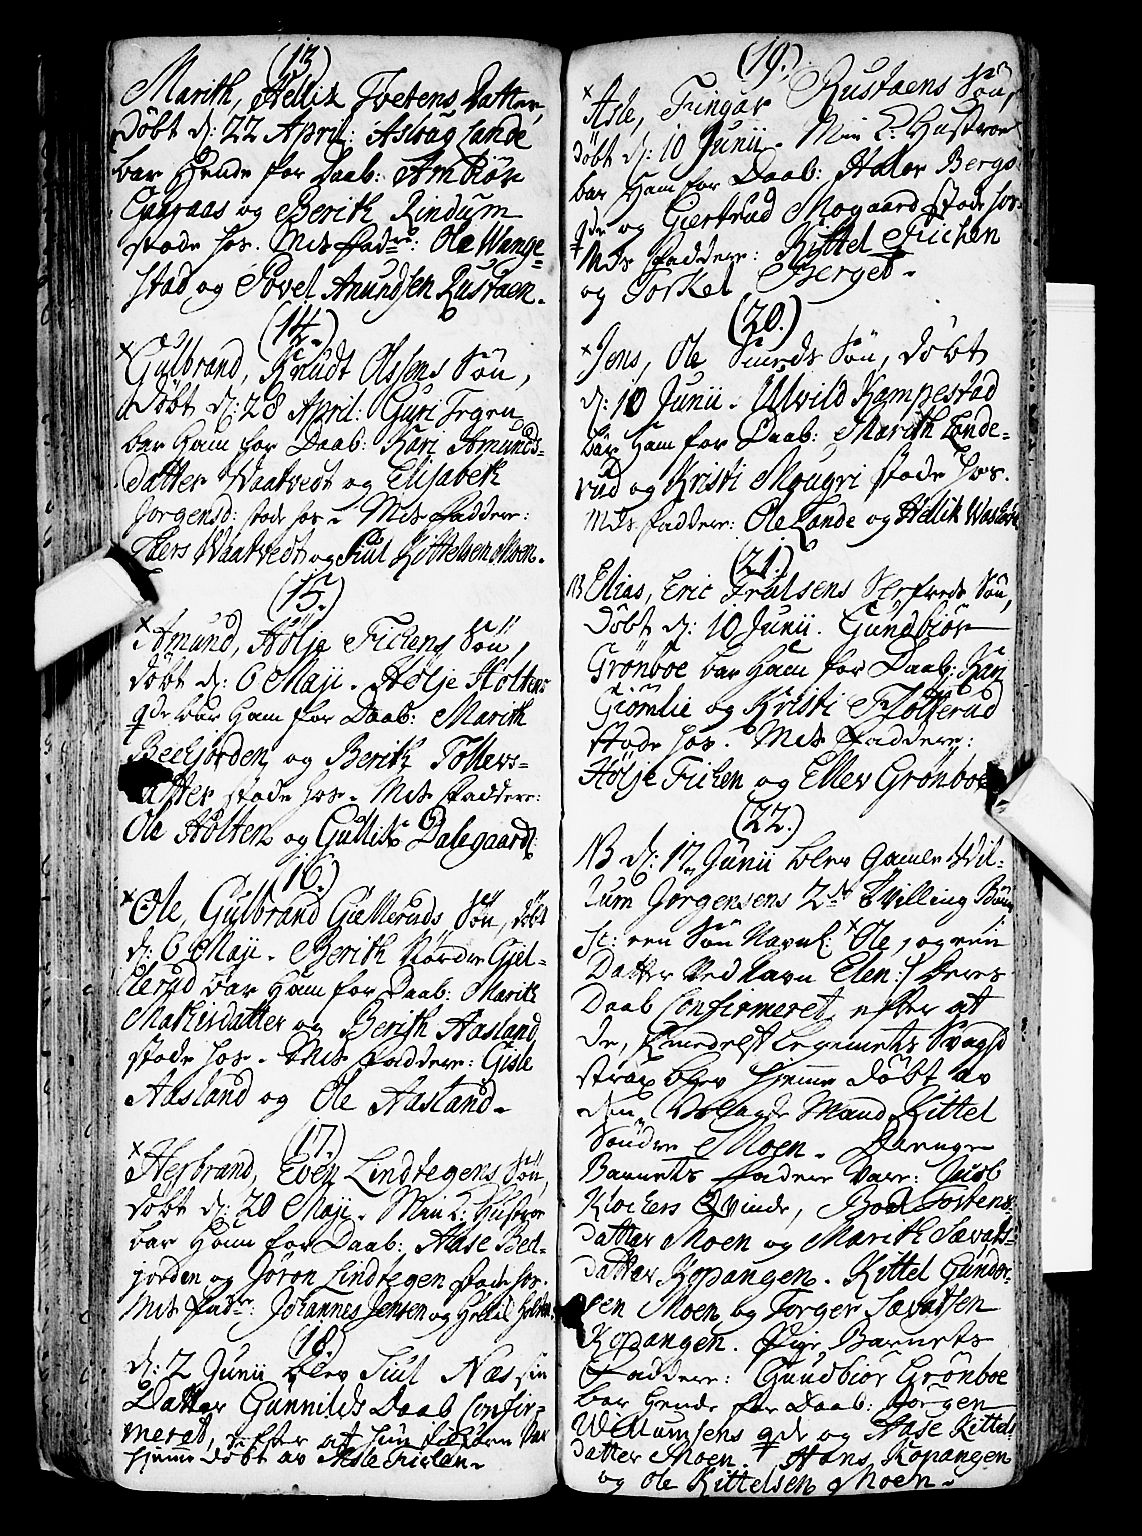 (13)
Marith, Hellik Tvetens Datter,
døbt d: 22 April: Aslaug Lande
bar Hende for Daab: Anbiør
og Berith Rindum
stode hos. Mds Fadre: Ole Wenge-
stad og Povel Amundsen Rustaen.
(14.)
× Gulbrand, Knudt Olssens Søn,
Døbt d: 28 April: Guri Tegen
bar Ham for Daab: Kari Amunds-
datter Waatvedt og Elisabeth
Jorgensd: stode hos. Mds Faddere:
Waatvedt og Juul Kittelsen Moen.
(15.)
× Amund, Hølje Fichens Søn,
døbt d: 6 Maji. Hølje Holtens
qde bar Ham for Daab: Marith
Beckjorden og Berith Tollevs-
datter stode hos. Mds Faddere:
Ole Holten og Gullik Dalegaard.
(16.)
× Ole, Gulbrand Gielleruds Søn, døbt
d: 6 Maji. Berith Nordre Giel-
lerud bar Ham for Daab: Marith
Mathisdatter og Berith Aasland
stode hos. Mds Faddere: Gisle
Aasland og Ole Aasland.
(17.)
× Herbrand, Even Lindtegens Søn,
døbt d: 20 Maji. Min K: Hustroe
bar Ham for Daab: Aase Bec-
jorden og Jøron Lindtegen stode hos.
Mds Fadr: Johannes Jensen og
(18.)
d: 2 Junii blev Juul Næs sin
Datter Gunnilds Daab Confir-
merat, efter at hun tilforn var
hiemme døbt av Asle Fichen.
(19.)
× Asle, Fingar Rustaens Søn,
døbt d: 10 Junii. Min K: Hustroe
bar Ham for Daab: Halvor Bergs
qde og Giertrud Mogaard stode hos.
Mds Faddere: Kittel Fichen
og Torkel Berget.
(20.)
× Jens, Ole Smeds Søn, døbt
d: 10 Junii. Ulvild Kampestad
bar Ham for Daab: Marith Lande-
rud og Kristi Mougri stode hos.
Mds Faddere: Ole Lande og Hellik
(21.)
NB Elias, Eric Truelsens Søn,
Døbt d: 10 Junii. Gundbiør
Grønboe bar Ham for Daab: Kari
Giømlie og Kristi Fløtterud
stode hos. Mds Faddere:
Hølje Fichen og Ellev Grønboe
(22.)
NB d: 17 Junii blev Gamle Wil-
lum Jørgensens 2de Tvilling Børn
sc: een Søn Navnl: × Ole, og een
Datter ved Navn Elen: / deres
Daab Confirmeret, efter at
de, formedelst Legemets Svaghd
strax blev hiemme døbt av
den Mand Kittel
Søndre Moen. Drenge
Barnets Fadere vare: Jusb
Klochers Qvinde, Boel Tostens
datter Moen og Marith Sævats-
datter Kopangen. Kittel Gunder-
sen Moen og Torger Sævatsen
Kopangen. Pige Barnets
Faddere: Gundbiør Grønboe
bar Hende for Daab: Jørgen
Willumsens qde og Aase Kittels
datter Moen. Hans Kopangen
og Ole Kittelsen Moen.